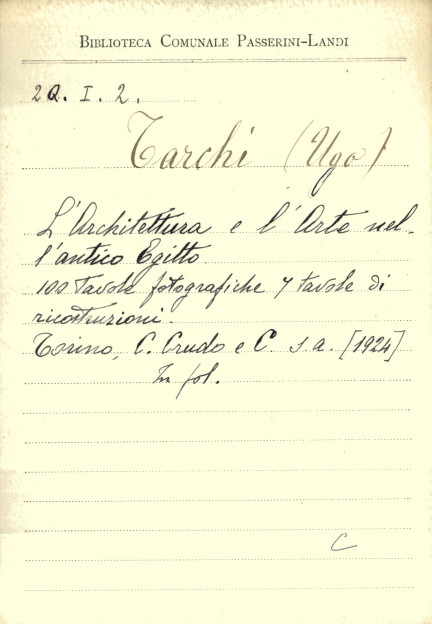 BIBLIOTECA COMUNALE PASSERINI-LANDI
2Q. I. 2.
Tarchi (Ugo)
L'Architettura e l'Arte nel-
l'antico Egitto
100 tavole fotografiche 7 tavole di
ricostruzioni.
Torino, C. Crudo e C. s. a. [1924]
In fol.
C